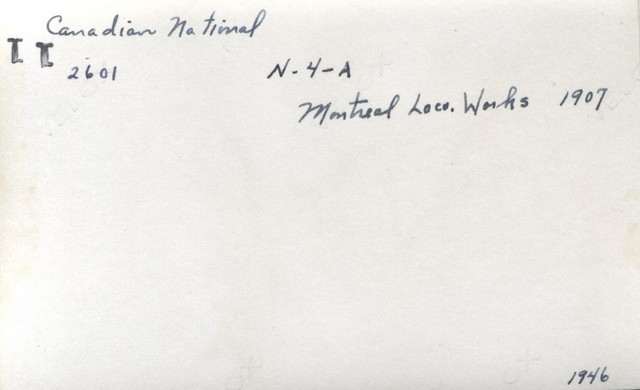 Canadian National
II
2601 N-4-A
Montreal Loco. Works 1907
1946